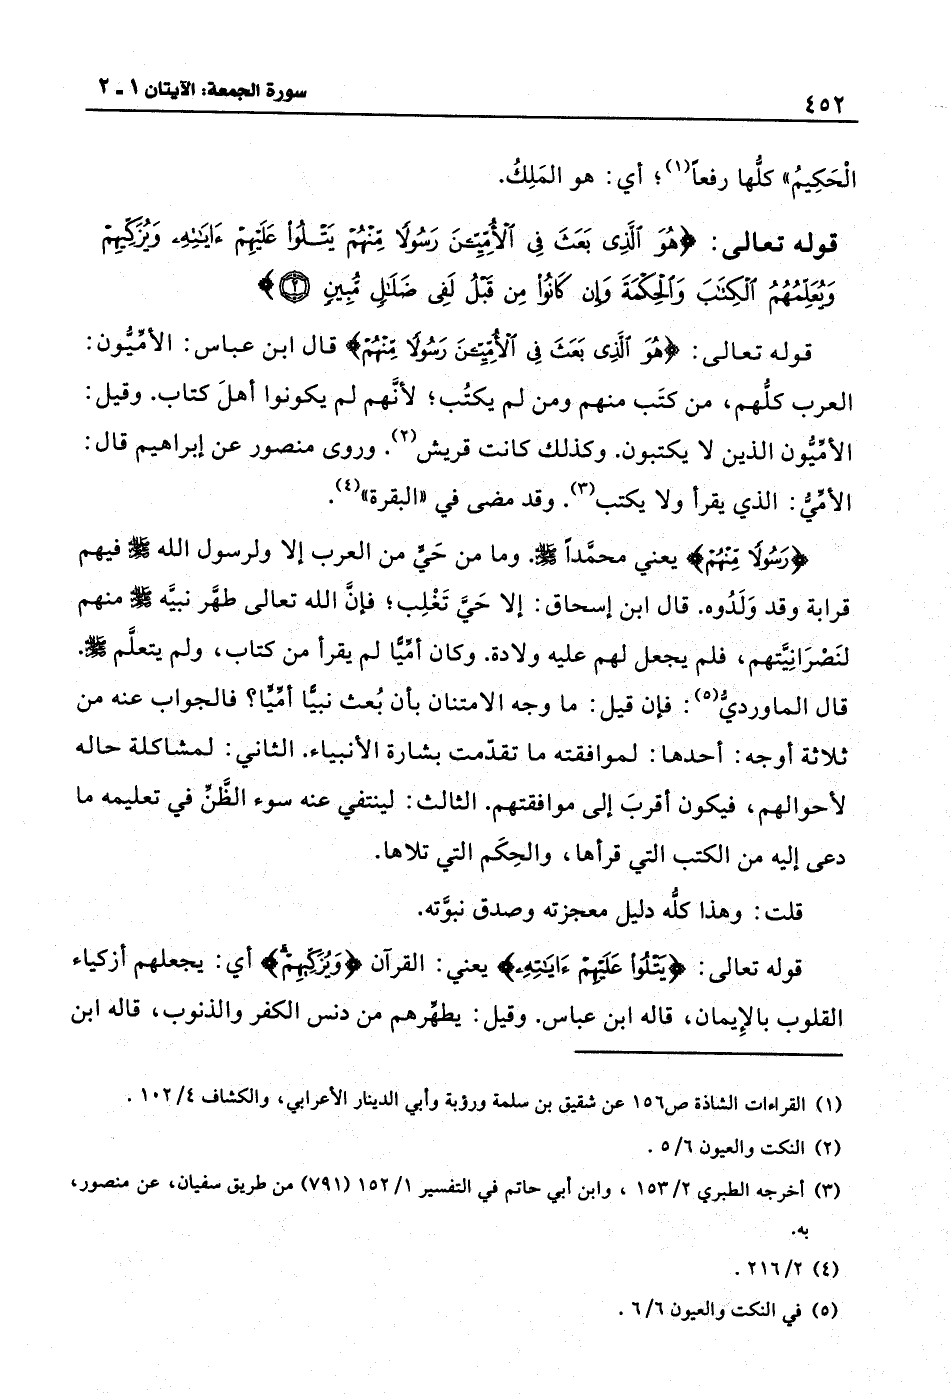 ٤٥٢ سورة الجمعة: الآيتان ١ - ٢
الْحَكِيمُ» كلُّها رفعاً(١)؛ أي: هو المَلِكُ.
قوله تعالى: ﴿هُوَ ٱلَّذِى بَعَثَ فِى ٱلْأُمِّيِّـۧنَ رَسُولًا مِّنْهُمْ يَتْلُوا۟ عَلَيْهِمْ ءَايَـٰتِهِۦ وَيُزَكِّيهِمْ
وَيُعَلِّمُهُمُ ٱلْكِتَـٰبَ وَٱلْحِكْمَةَ وَإِن كَانُوا۟ مِن قَبْلُ لَفِى ضَلَـٰلٍ مُّبِينٍ ۝٢﴾
قوله تعالى: ﴿هُوَ ٱلَّذِى بَعَثَ فِى ٱلْأُمِّيِّـۧنَ رَسُولًا مِّنْهُمْ﴾ قال ابن عباس: الأمِّيُّون:
العرب كلُّهم، من كتَب منهم ومن لم يكتُب؛ لأنَّهم لم يكونوا أهلَ كتاب. وقيل:
الأمِّيُّون الذين لا يكتبون. وكذلك كانت قريش(٢). وروى منصور عن إبراهيم قال:
الأمِّيُّ: الذي يقرأ ولا يكتب(٣). وقد مضى في «البقرة»(٤).
﴿رَسُولًا مِّنْهُمْ﴾ يعني محمَّداً ﷺ. وما من حَيٍّ من العرب إلا ولرسول الله ﷺ فيهم
قرابة وقد وَلَدُوه. قال ابن إسحاق: إلا حَيَّ تَغْلِب؛ فإنَّ الله تعالى طهَّر نبيَّه ﷺ منهم
لنَصْرَانِيَّتهم، فلم يجعل لهم عليه ولادة. وكان أمِّيًّا لم يقرأ من كتاب، ولم يتعلَّم ﷺ.
قال الماورديُّ(٥): فإن قيل: ما وجه الامتنان بأن بُعث نبيًّا أمِّيًّا؟ فالجواب عنه من
ثلاثة أوجه: أحدها: لموافقته ما تقدّمت بشارة الأنبياء. الثاني: لمشاكلة حاله
لأحوالهم، فيكون أقربَ إلى موافقتهم. الثالث: لينتفي عنه سوء الظَّنِّ في تعليمه ما
دعى إليه من الكتب التي قرأها، والحِكَم التي تلاها.
قلت: وهذا كلُّه دليل معجزته وصدق نبوَّته.
قوله تعالى: ﴿يَتْلُوا۟ عَلَيْهِمْ ءَايَـٰتِهِۦ﴾ يعني: القرآن ﴿وَيُزَكِّيهِمْ﴾ أي: يجعلهم أزكياء
القلوب بالإيمان، قاله ابن عباس. وقيل: يطهِّرهم من دنس الكفر والذنوب، قاله ابن
(١) القراءات الشاذة ص١٥٦ عن شقيق بن سلمة ورؤبة وأبي الدينار الأعرابي، والكشاف ٤/ ١٠٢ .
(٢) النكت والعيون ٦/ ٥ .
(٣) أخرجه الطبري ٢/ ١٥٣ ، وابن أبي حاتم في التفسير ١/ ١٥٢ (٧٩١) من طريق سفيان، عن منصور،
به.
(٤) ٢/ ٢١٦ .
(٥) في النكت والعيون ٦/ ٦ .